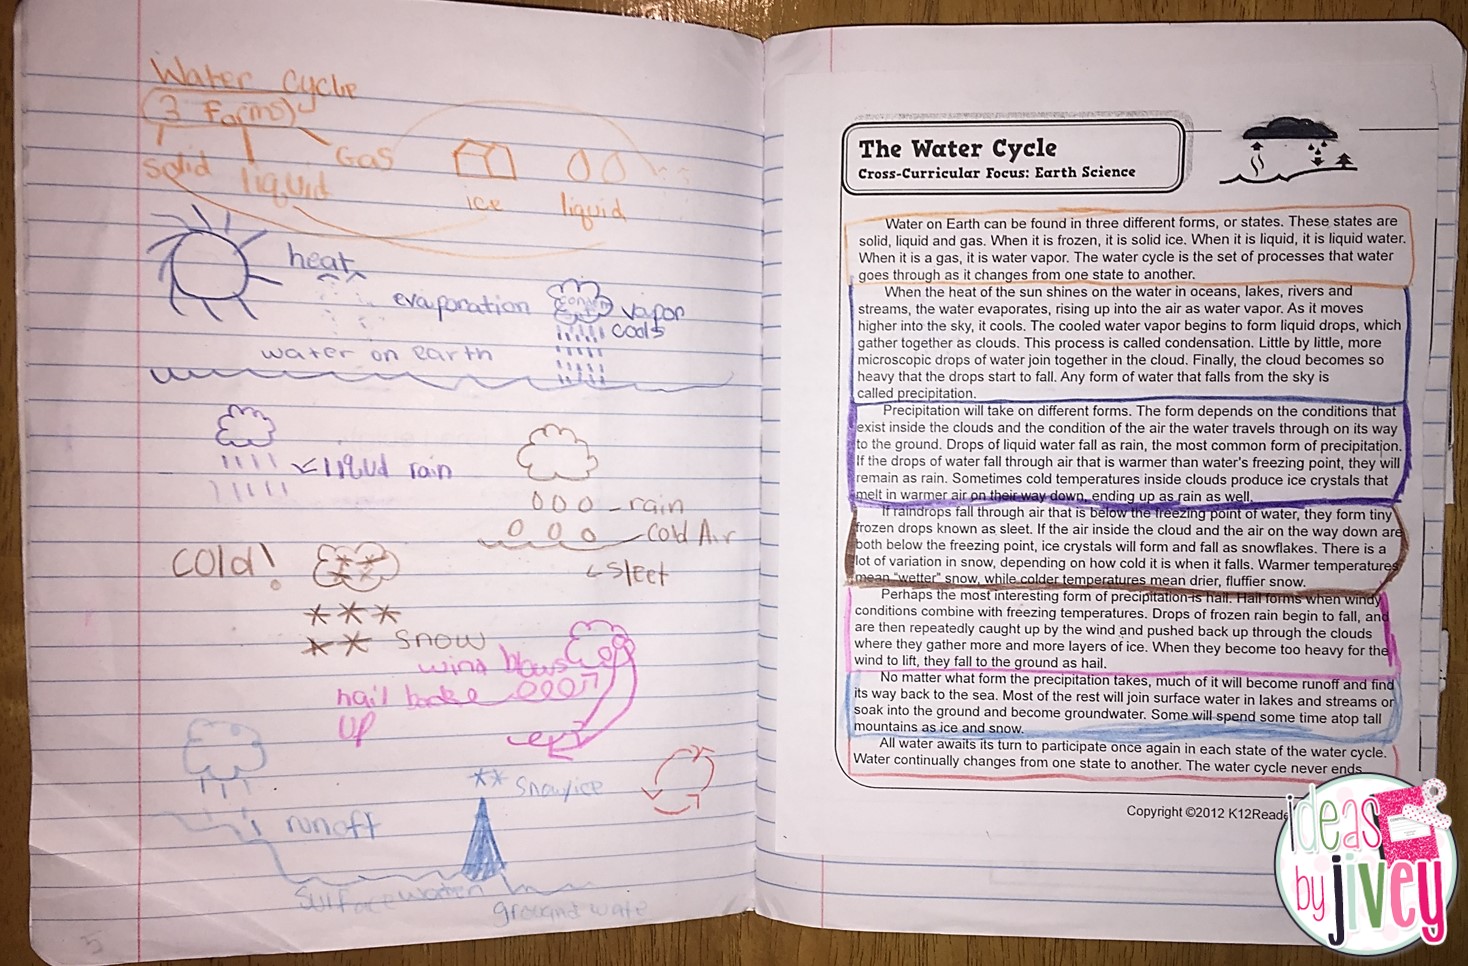 Water Cycle
(3 forms)
solid
liquid
Gas
ice
liquid
heat
evaporation
vapor
cools
water on earth
liquid rain
rain
cold Air
sleet
cold!
snow
wind blows
hail back
up
** snow/ice
runoff
surface water
ground wate
5
The Water Cycle
Cross-Curricular Focus: Earth Science
Water on Earth can be found in three different forms, or states. These states are
solid, liquid and gas. When it is frozen, it is solid ice. When it is liquid, it is liquid water.
When it is a gas, it is water vapor. The water cycle is the set of processes that water
goes through as it changes from one state to another.
When the heat of the sun shines on the water in oceans, lakes, rivers and
streams, the water evaporates, rising up into the air as water vapor. As it moves
higher into the sky, it cools. The cooled water vapor begins to form liquid drops, which
gather together as clouds. This process is called condensation. Little by little, more
microscopic drops of water join together in the cloud. Finally, the cloud becomes so
heavy that the drops start to fall. Any form of water that falls from the sky is
called precipitation.
Precipitation will take on different forms. The form depends on the conditions that
exist inside the clouds and the condition of the air the water travels through on its way
to the ground. Drops of liquid water fall as rain, the most common form of precipitation.
If the drops of water fall through air that is warmer than water's freezing point, they will
remain as rain. Sometimes cold temperatures inside clouds produce ice crystals that
melt in warmer air on their way down, ending up as rain as well.
If raindrops fall through air that is below the freezing point of water, they form tiny
frozen drops known as sleet. If the air inside the cloud and the air on the way down are
both below the freezing point, ice crystals will form and fall as snowflakes. There is a
lot of variation in snow, depending on how cold it is when it falls. Warmer temperatures
mean "wetter" snow, while colder temperatures mean drier, fluffier snow.
Perhaps the most interesting form of precipitation is hail. Hail forms when windy
conditions combine with freezing temperatures. Drops of frozen rain begin to fall, and
are then repeatedly caught up by the wind and pushed back up through the clouds
where they gather more and more layers of ice. When they become too heavy for the
wind to lift, they fall to the ground as hail.
No matter what form the precipitation takes, much of it will become runoff and find
its way back to the sea. Most of the rest will join surface water in lakes and streams or
soak into the ground and become groundwater. Some will spend some time atop tall
mountains as ice and snow.
All water awaits its turn to participate once again in each state of the water cycle.
Water continually changes from one state to another. The water cycle never ends.
Copyright ©2012 K12Reade
ideas
by jivey